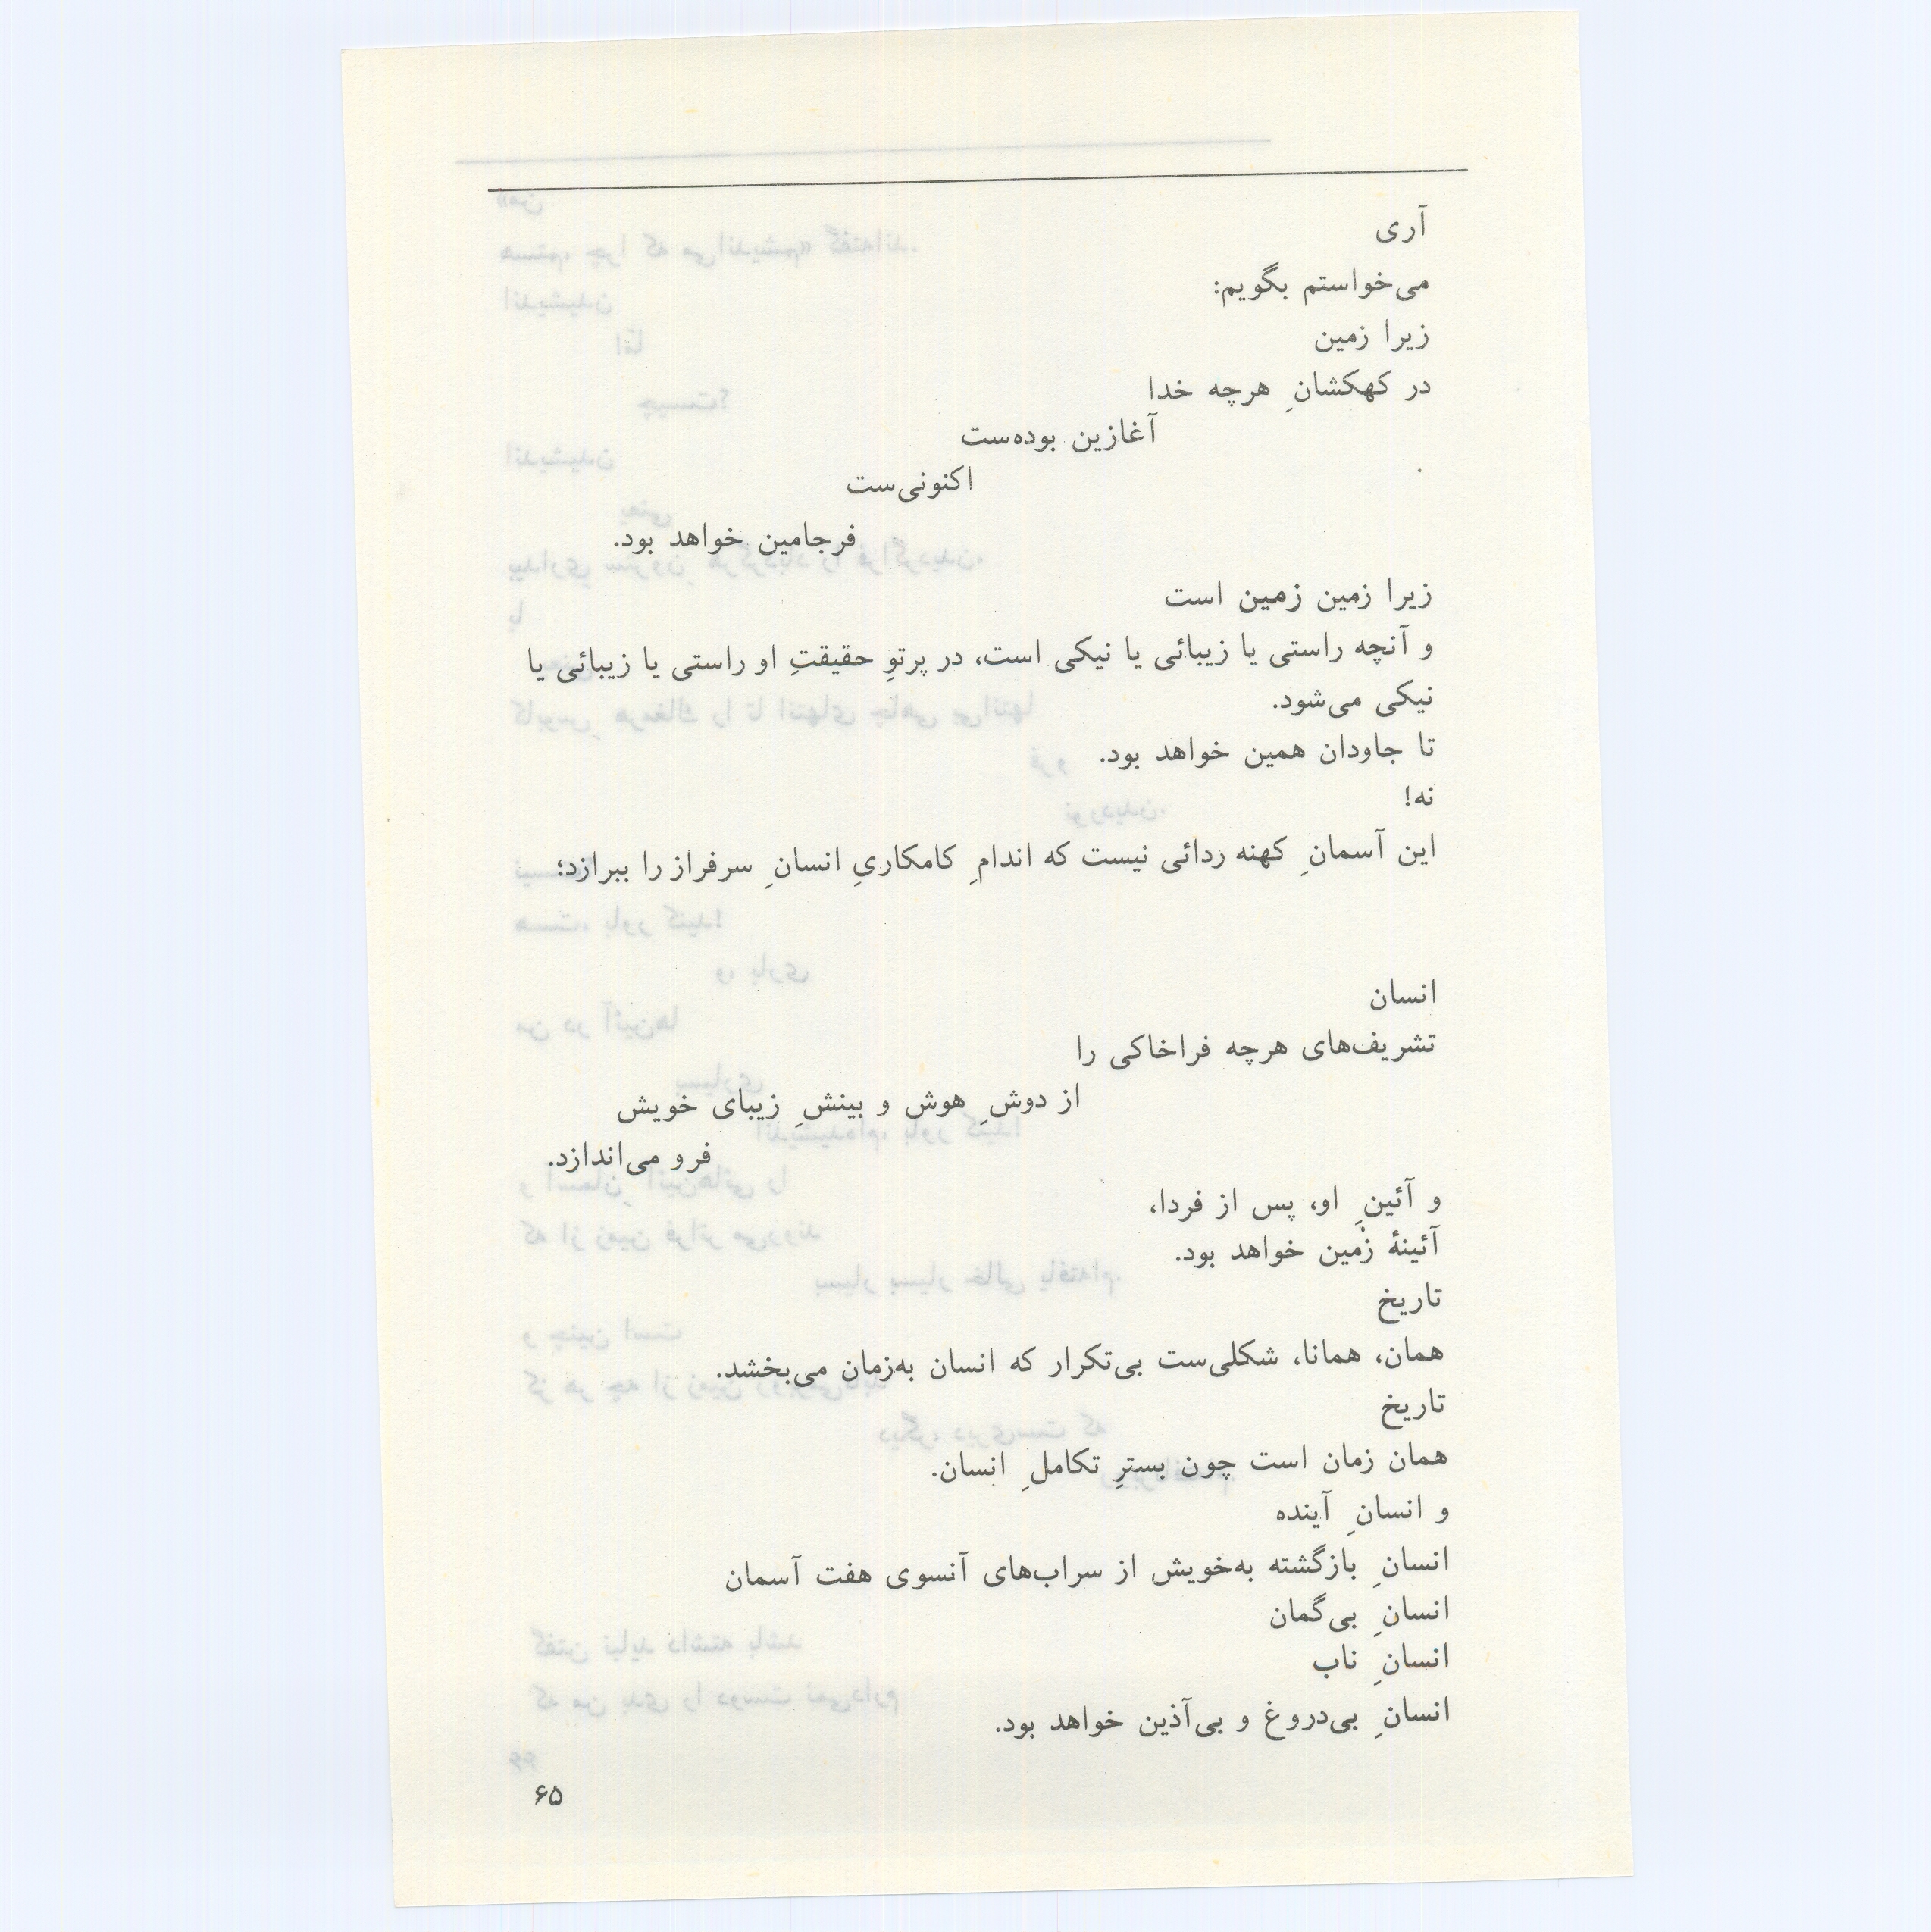 آری
می‌خواستم بگویم:
زیرا زمین
در کهکشانِ هرچه خدا
آغازین بوده‌ست
اکنونی‌ست
فرجامین خواهد بود.
زیرا زمین زمین است
و آنچه راستی یا زیبائی یا نیکی است، در پرتوِ حقیقتِ او راستی یا زیبائی یا
نیکی می‌شود.
تا جاودان همین خواهد بود.
نه!
این آسمانِ کهنه ردائی نیست که اندامِ کامکاریِ انسانِ سرفراز را ببرازد؛
انسان
تشریف‌های هرچه فراخاکی را
از دوشِ هوش و بینشِ زیبای خویش
فرو می‌اندازد.
و آئینِ او، پس از فردا،
آئینهٔ زمین خواهد بود.
تاریخ
همان، همانا، شکلی‌ست بی‌تکرار که انسان به‌زمان می‌بخشد.
تاریخ
همان زمان است چون بسترِ تکاملِ انسان.
و انسانِ آینده
انسانِ بازگشته به‌خویش از سراب‌های آنسوی هفت آسمان
انسانِ بی‌گمان
انسانِ ناب
انسانِ بی‌دروغ و بی‌آذین خواهد بود.
۶۵